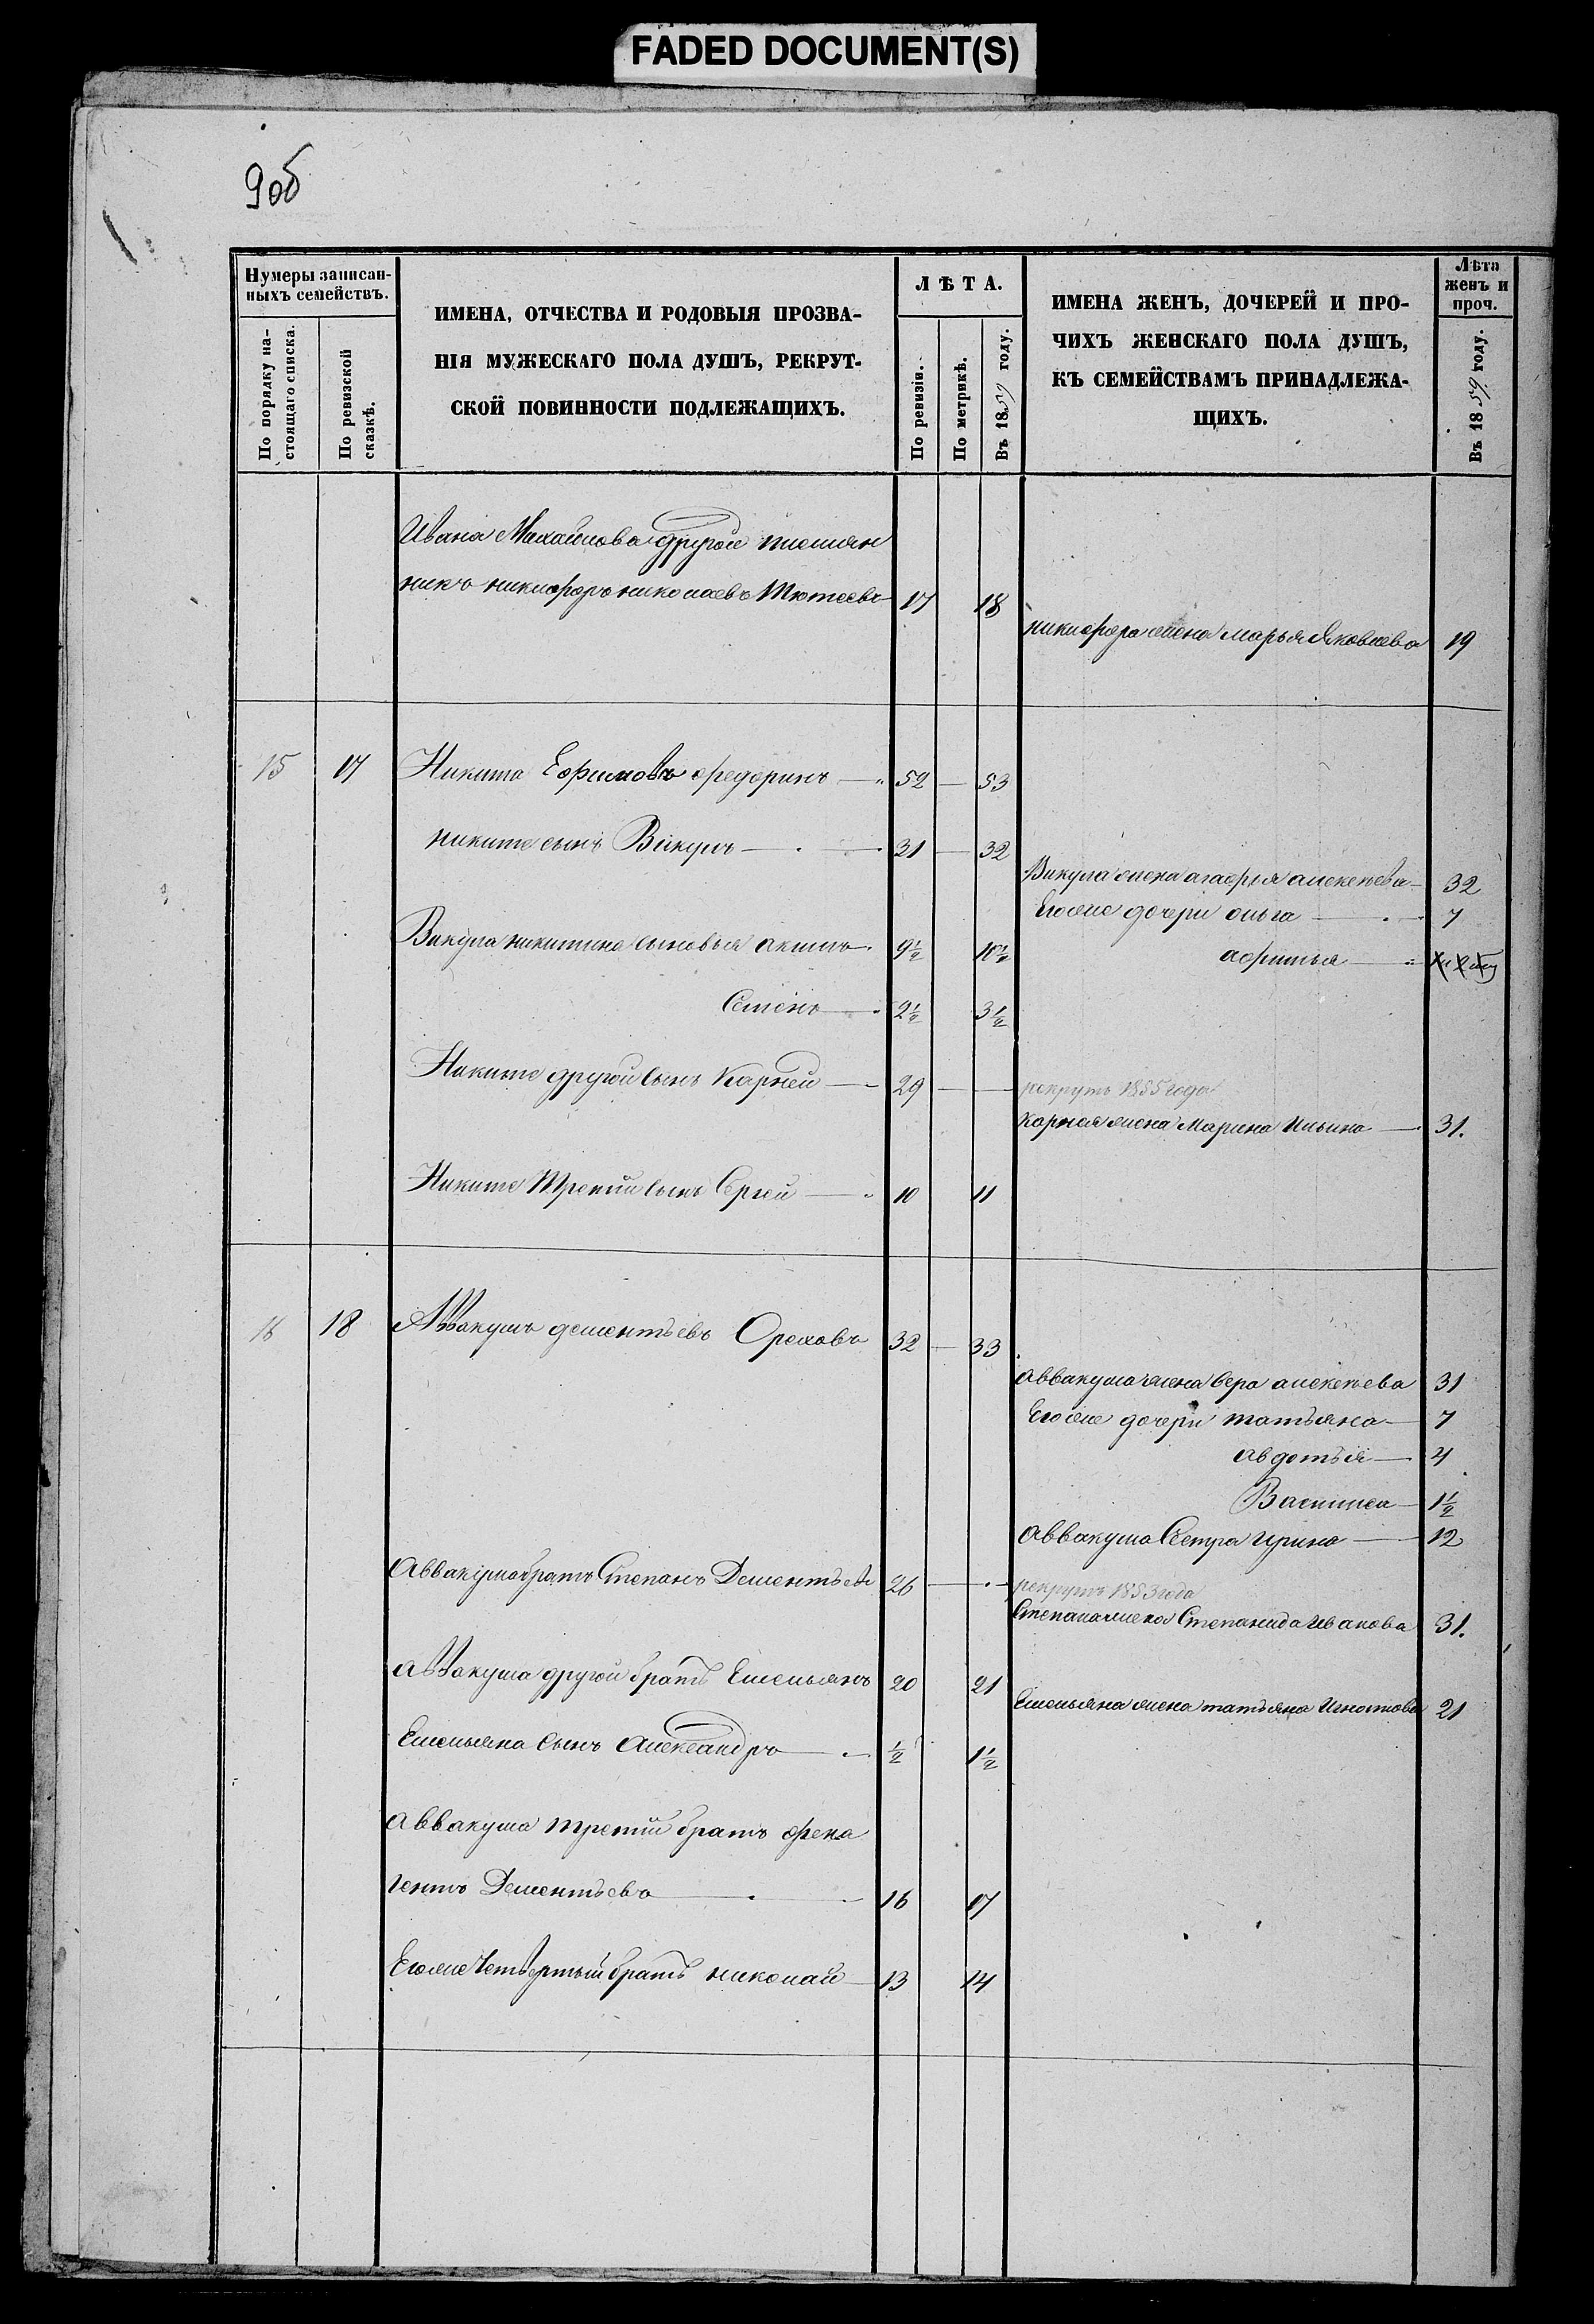 FADED DOCUMENT(S)
9об
Нумеры записан-
ныхъ семействъ.
По порядку на-
стоящаго списка.
По ревизской
сказкѣ.
ИМЕНА, ОТЧЕСТВА И РОДОВЫЯ ПРОЗВА-
НІЯ МУЖЕСКАГО ПОЛА ДУШЪ, РЕКРУТ-
СКОЙ ПОВИННОСТИ ПОДЛЕЖАЩИХЪ.
ЛѢТА.
По ревизіи.
По метрикѣ.
Въ 1859 году.
ИМЕНА ЖЕНЪ, ДОЧЕРЕЙ И ПРО-
ЧИХЪ ЖЕНСКАГО ПОЛА ДУШЪ,
КЪ СЕМЕЙСТВАМЪ ПРИНАДЛЕЖА-
ЩИХЪ.
Лѣта
женъ и
проч.
Въ 1859 году.
Ивана Михайлова другой племян
никъ никифоръ николаевъ Тютеевъ 17 18
никифора жена марья Яковлева 19
15 17 Никита Ефимовъ федоринъ 52 — 53
никите сынъ Викулъ 31 — 32
Викула жена агафья алексѣева 32
Его же дочери ольга 7
Викула никитина сыновья акимъ 9½ 10½
афимья
Семенъ 2½ 3½
Никите другой сынъ Карней 29 — —
рекрутъ 1855 года
Карнея жена Марина Ильина 31.
Никите Третий сынъ Сергей 10 11
16 18 Аввакумъ дементьевъ Ореховъ 32 — 33
аввакума жена вера алексѣева 31
Его же дочери татьяна 7
авдотья 4
Василиса 1½
Аввакума Сестра ирина 12
Аввакума братъ Степанъ Дементьевъ 26
рекрутъ 1853 года
Степана жена Степанида Иванова 31.
аввакума другой братъ Емельянъ 20 21
Емельяна жена татьяна Игнатова 21
Емельяна сынъ александръ ½ 1½
аввакума третий братъ фека
гентъ Дементьевъ 16 17
Его же Четвертый братъ николай 13 14